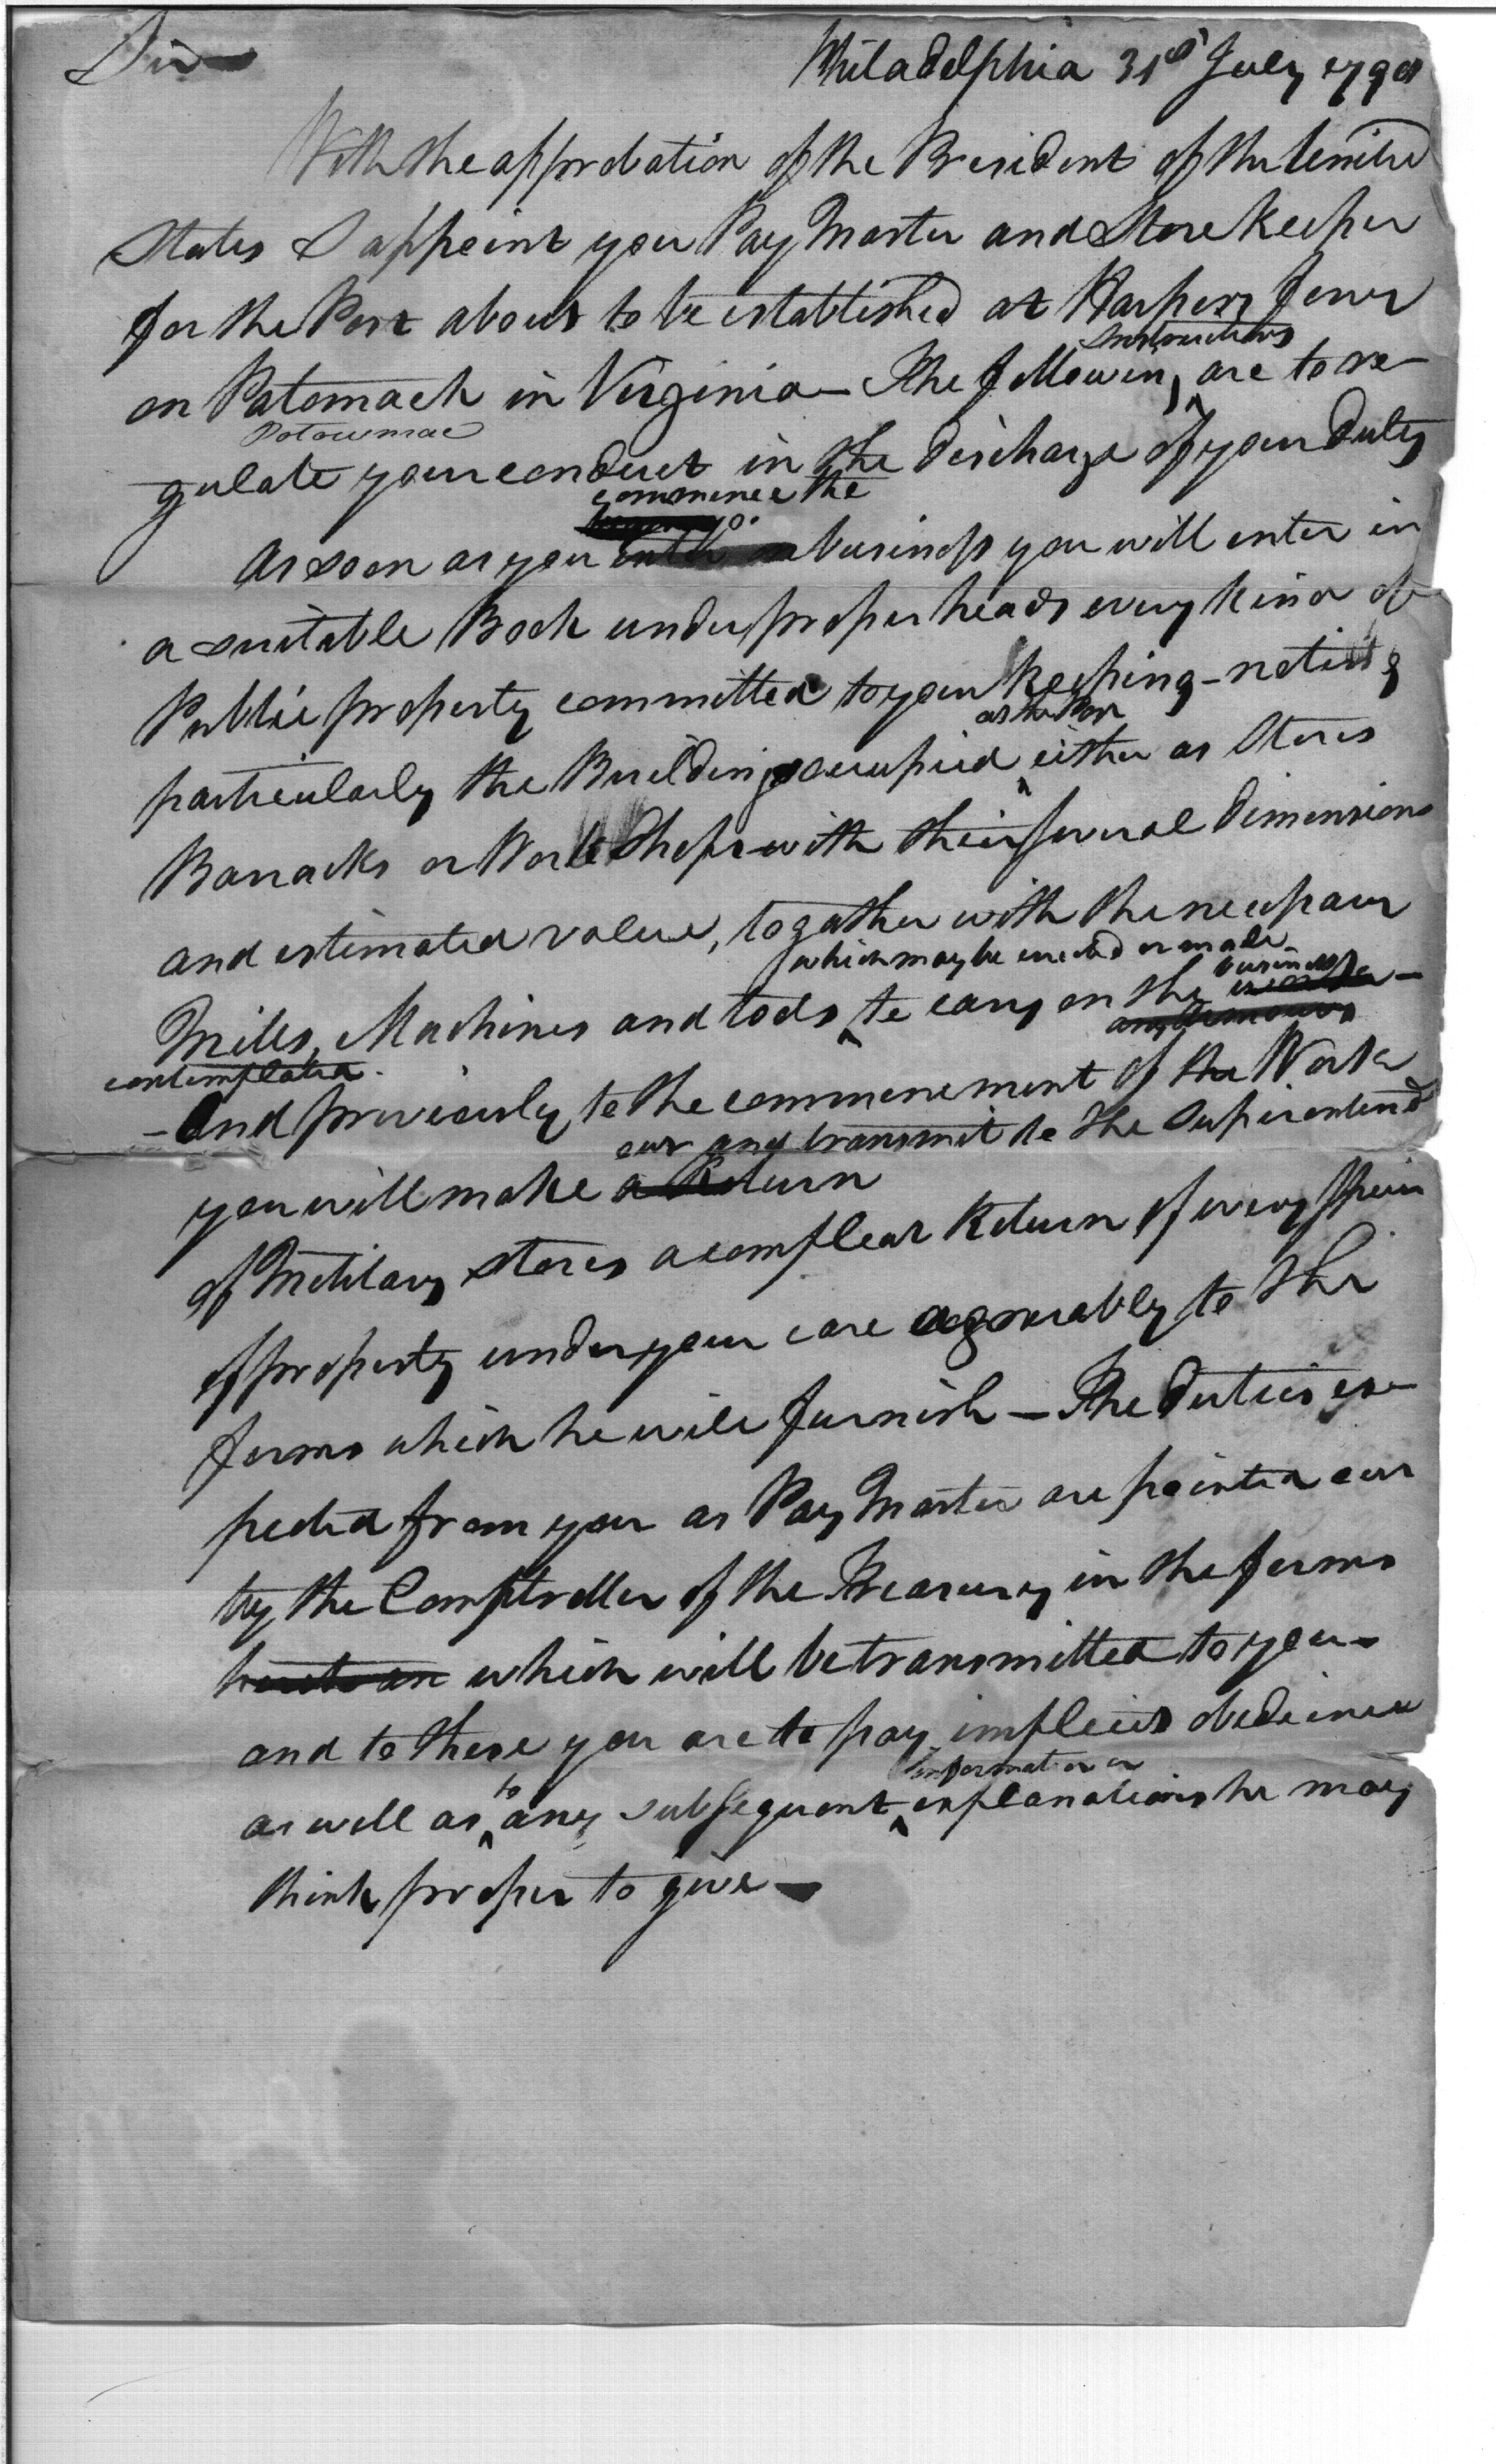 Sir
Philadelphia 31st July 1798
With the approbation of the President of the United
States I appoint you Pay Master and Store Keeper
for the Post about to be established at Harpers ferry
Instructions
on Patomack in Virginia – The following are to re-
Potowmac
gulate your conduct in the discharge of your duty
commence the
As soon as you business you will enter in
a suitable Book under proper heads every kind of
Public property committed to your keeping – noting
particularly the Buildings occupied either as Stores
Barracks or Work Shops with their several dimensions
and estimated value, togather with the
which may be erected or made
business
Mills, Machines and tools to cary on the
contemplated.
– And previously to the commencement of the Work
out and transmit to the Superintend
you will make a Return
of Military stores a compleat Return of every specie
of property under your care agreeably to the
forms which he will furnish – The duties ex-
pected from you as Pay Master are pointed out
by the Comptroller of the Treasury in the forms
which will be transmitted to you –
and to these you are to pay implicit obedience
information or
to
as well as any subsequent explanations he may
think proper to give –